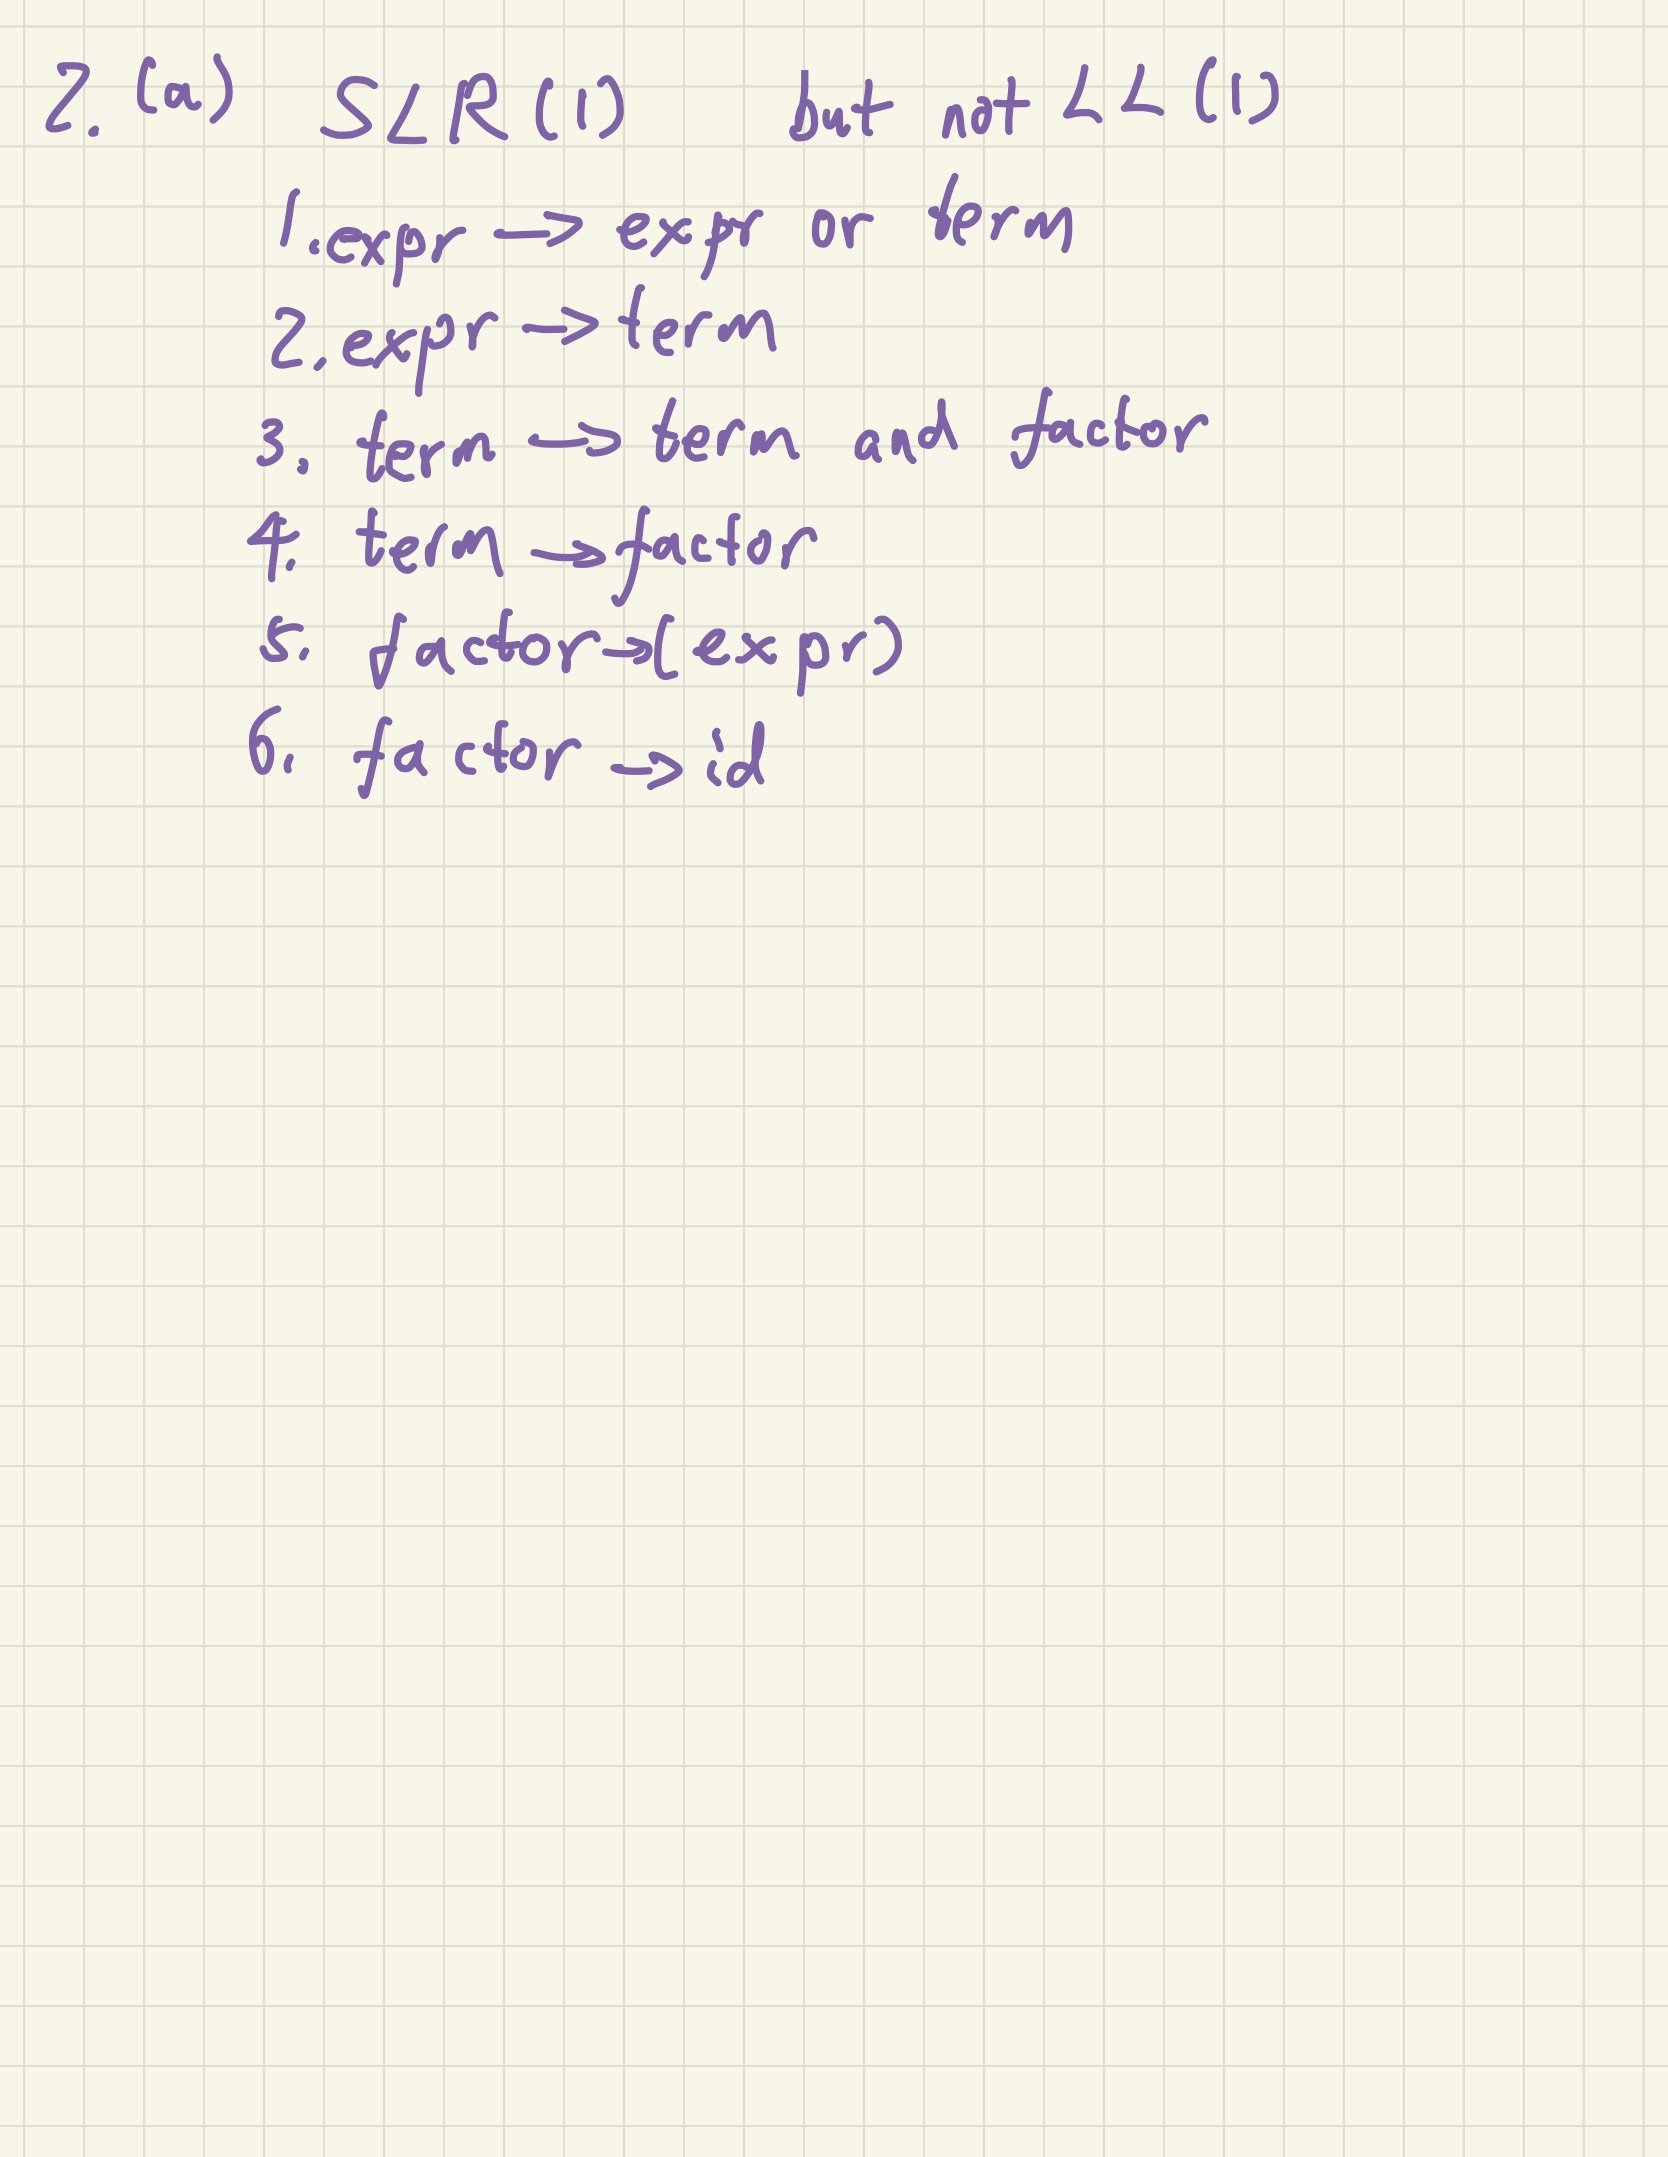 2. (a) SLR(1) but not LL(1)
1. expr → expr or term
2. expr → term
3. term → term and factor
4. term → factor
5. factor → (expr)
6. factor → id